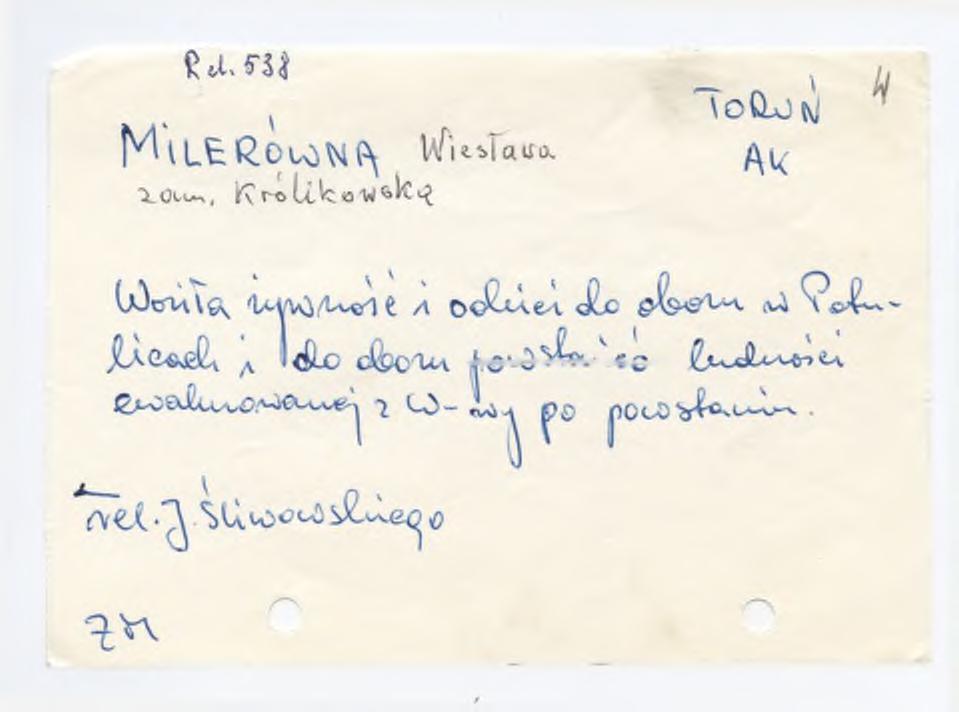 Rel. 538
W
TORUŃ
MILERÓWNA Wiesława
AK
zam. Królikowska
Woziła żywność i odzież do obozu w Potu-
licach i do obozu ludności
ewakuowanej z W-wy po powstaniu.
rel. J. Śliwowskiego
ZM